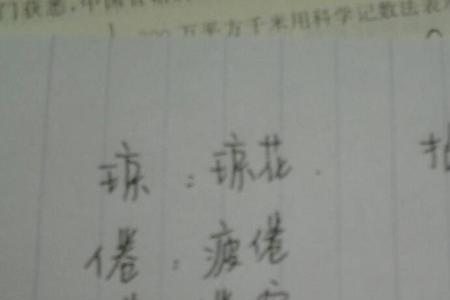 门获悉，中国
万平方千米用科学记数法表
琼：琼花
倦：疲倦